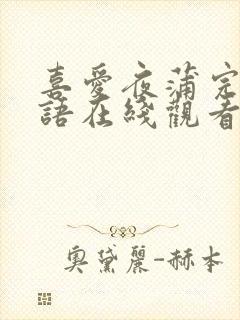 喜愛夜蒲完
語在綫觀看
奧黛麗-赫本